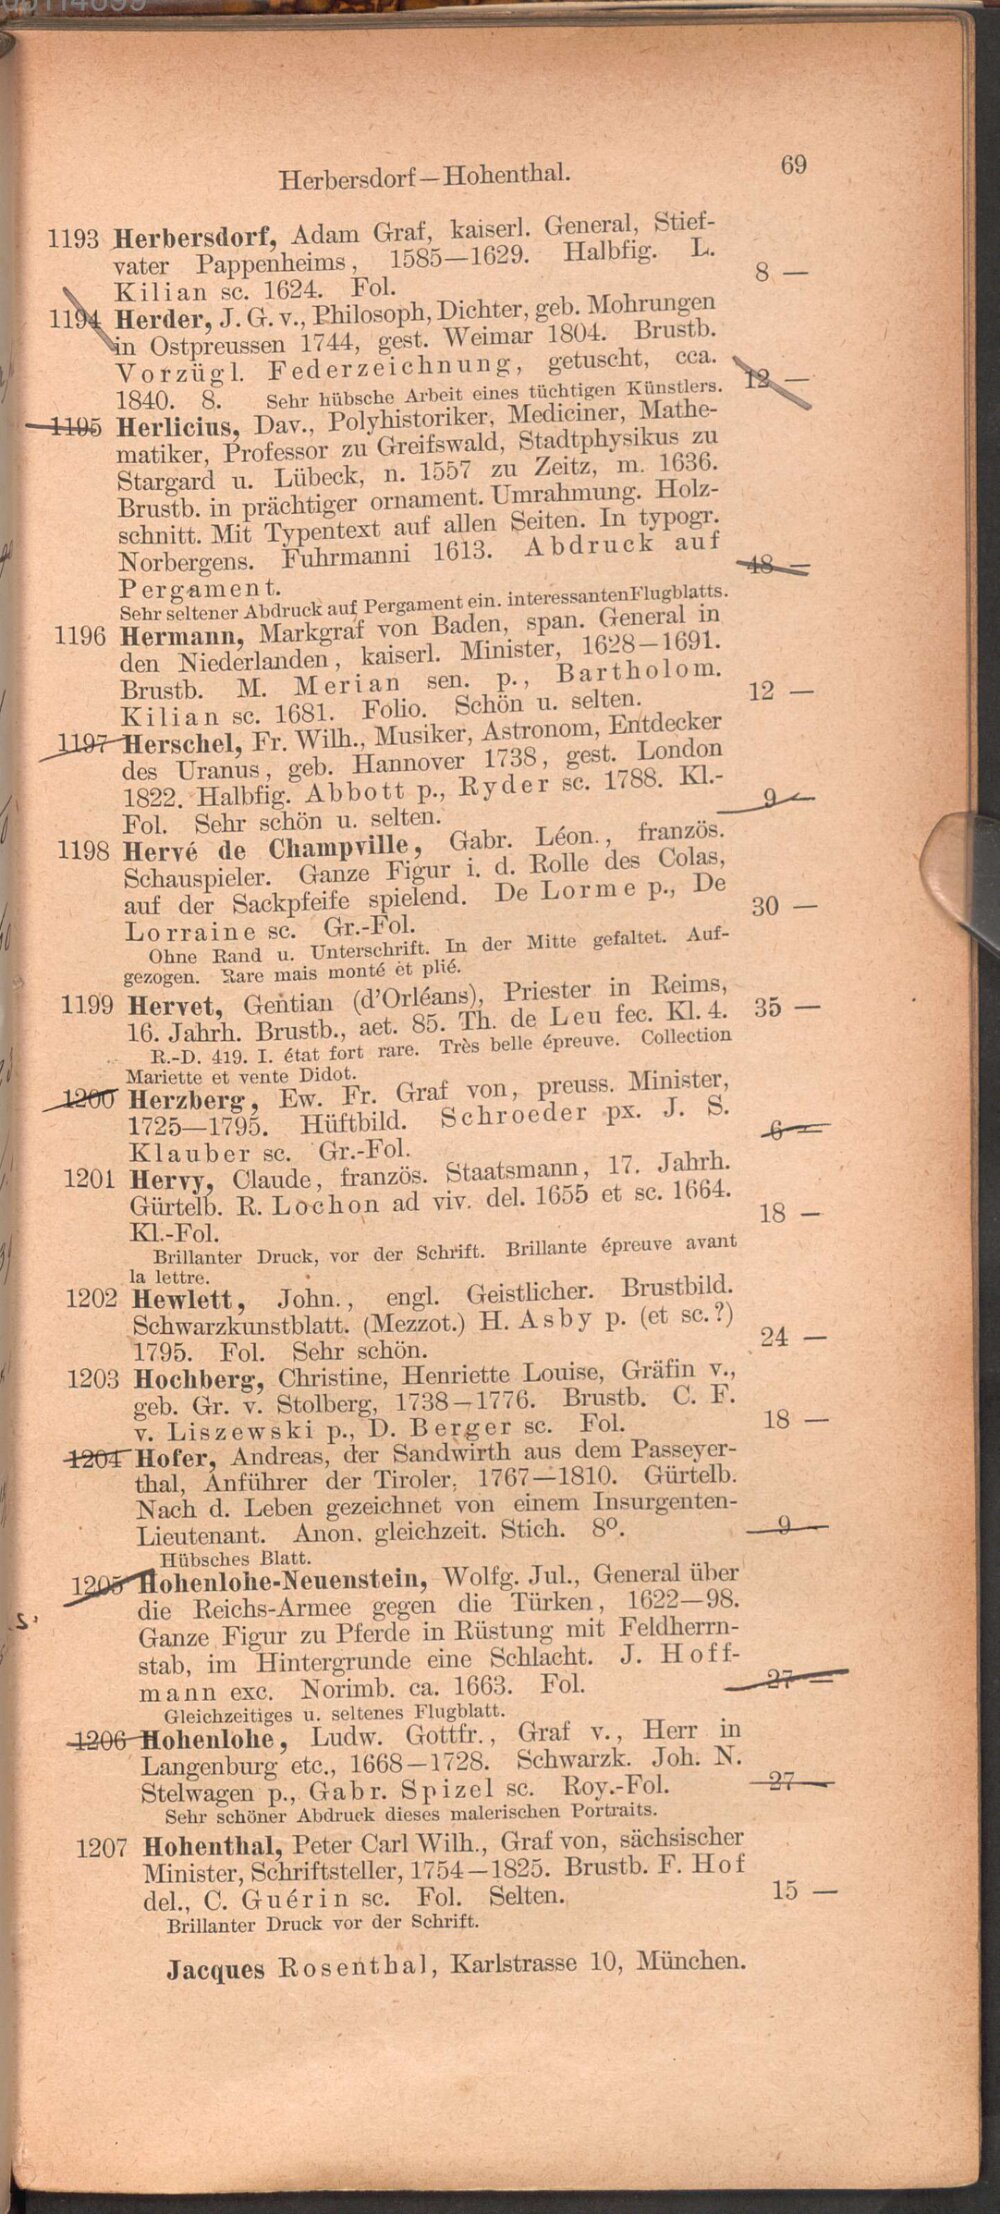 Herbersdorf—Hohenthal. 69
1193 Herbersdorf, Adam Graf, kaiserl. General, Stief-
vater Pappenheims, 1585—1629. Halbfig. L.
Kilian sc. 1624. Fol. 8 —
1194 Herder, J. G. v., Philosoph, Dichter, geb. Mohrungen
in Ostpreussen 1744, gest. Weimar 1804. Brustb.
Vorzügl. Federzeichnung, getuscht, cca.
1840. 8. Sehr hübsche Arbeit eines tüchtigen Künstlers. 12 —
1195 Herlicius, Dav., Polyhistoriker, Mediciner, Mathe-
matiker, Professor zu Greifswald, Stadtphysikus zu
Stargard u. Lübeck, n. 1557 zu Zeitz, m. 1636.
Brustb. in prächtiger ornament. Umrahmung. Holz-
schnitt. Mit Typentext auf allen Seiten. In typogr.
Norbergens. Fuhrmanni 1613. Abdruck auf
Pergament. 48 —
Sehr seltener Abdruck auf Pergament ein. interessantenFlugblatts.
1196 Hermann, Markgraf von Baden, span. General in
den Niederlanden, kaiserl. Minister, 1628—1691.
Brustb. M. Merian sen. p., Bartholom.
Kilian sc. 1681. Folio. Schön u. selten. 12 —
1197 Herschel, Fr. Wilh., Musiker, Astronom, Entdecker
des Uranus, geb. Hannover 1738, gest. London
1822. Halbfig. Abbott p., Ryder sc. 1788. Kl.-
Fol. Sehr schön u. selten. 9 —
1198 Hervé de Champville, Gabr. Léon., französ.
Schauspieler. Ganze Figur i. d. Rolle des Colas,
auf der Sackpfeife spielend. De Lorme p., De
Lorraine sc. Gr.-Fol. 30 —
Ohne Rand u. Unterschrift. In der Mitte gefaltet. Auf-
gezogen. Rare mais monté et plié.
1199 Hervet, Gentian (d'Orléans), Priester in Reims,
16. Jahrh. Brustb., aet. 85. Th. de Leu fec. Kl. 4. 35 —
R.-D. 419. I. état fort rare. Très belle épreuve. Collection
Mariette et vente Didot.
1200 Herzberg, Ew. Fr. Graf von, preuss. Minister,
1725—1795. Hüftbild. Schroeder px. J. S.
Klauber sc. Gr.-Fol. 6 —
1201 Hervy, Claude, französ. Staatsmann, 17. Jahrh.
Gürtelb. R. Lochon ad viv. del. 1655 et sc. 1664.
Kl.-Fol. 18 —
Brillanter Druck, vor der Schrift. Brillante épreuve avant
la lettre.
1202 Hewlett, John., engl. Geistlicher. Brustbild.
Schwarzkunstblatt. (Mezzot.) H. Asby p. (et sc.?)
1795. Fol. Sehr schön. 24 —
1203 Hochberg, Christine, Henriette Louise, Gräfin v.,
geb. Gr. v. Stolberg, 1738—1776. Brustb. C. F.
v. Liszewski p., D. Berger sc. Fol. 18 —
1204 Hofer, Andreas, der Sandwirth aus dem Passeyer-
thal, Anführer der Tiroler, 1767—1810. Gürtelb.
Nach d. Leben gezeichnet von einem Insurgenten-
Lieutenant. Anon. gleichzeit. Stich. 8º. 9 —
Hübsches Blatt.
1205 Hohenlohe-Neuenstein, Wolfg. Jul., General über
die Reichs-Armee gegen die Türken, 1622—98.
Ganze Figur zu Pferde in Rüstung mit Feldherrn-
stab, im Hintergrunde eine Schlacht. J. Hoff-
mann exc. Norimb. ca. 1663. Fol. 27 —
Gleichzeitiges u. seltenes Flugblatt.
1206 Hohenlohe, Ludw. Gottfr., Graf v., Herr in
Langenburg etc., 1668—1728. Schwarzk. Joh. N.
Stelwagen p., Gabr. Spizel sc. Roy.-Fol. 27 —
Sehr schöner Abdruck dieses malerischen Portraits.
1207 Hohenthal, Peter Carl Wilh., Graf von, sächsischer
Minister, Schriftsteller, 1754—1825. Brustb. F. Hof
del., C. Guérin sc. Fol. Selten. 15 —
Brillanter Druck vor der Schrift.
Jacques Rosenthal, Karlstrasse 10, München.